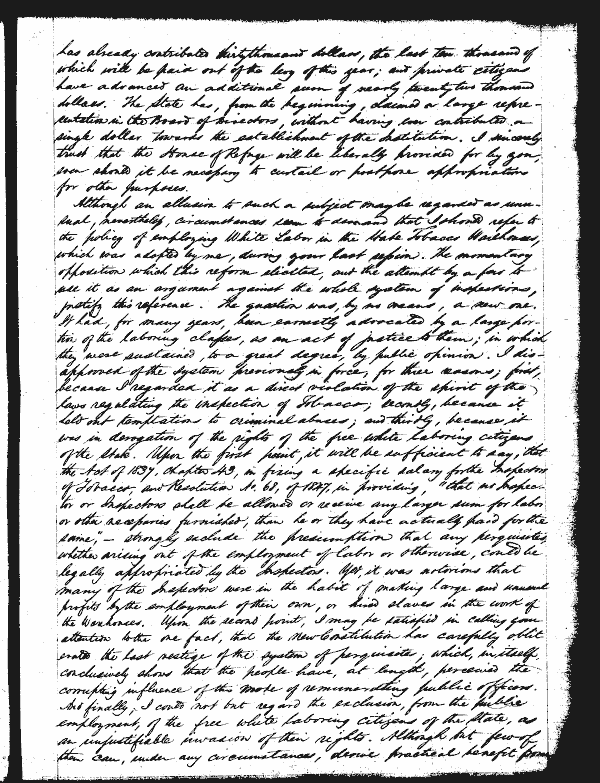 has already contributed thirty thousand dollars, the last ten thousand of
which will be paid out of the levy of this year; and private citizens
have advanced an additional sum of nearly twenty two thousand
dollars. The State has, from the beginning, claimed a large repre-
sentation in the Board of Directors, without having ever contributed a
single dollar towards the establishment of the Institution. I sincerely
trust that the House of Refuge will be liberally provided for by you,
even should it be necessary to curtail or postpone appropriations
for other purposes.
Although an allusion to such a subject may be regarded as unu-
sual, nevertheless, circumstances seem to demand that I should refer to
the policy of employing White Labor in the State Tobacco Warehouses,
which was adopted by me, during your last session. The momentary
opposition which this reform elicited, and the attempt by a few to
use it as an argument against the whole system of inspections,
justify this reference. The question was, by no means, a new one.
It had, for many years, been earnestly advocated by a large por-
tion of the laboring classes, as an act of justice to them; in which
they were sustained, to a great degree, by public opinion. I dis-
approved of the system previously in force, for three reasons; first,
because I regarded it as a direct violation of the spirit of the
laws regulating the inspection of Tobacco; secondly, because it
held out temptations to criminal abuses; and thirdly, because it
was in derogation of the rights of the free white laboring citizens
of the State. Upon the first point, it will be sufficient to say, that
the Act of 1837, chapter 43, in fixing a specific salary for the Inspectors
of Tobacco, and Resolution No. 68, of 1847, in providing, "that no Inspec-
tor or Inspectors shall be allowed or receive any larger sum for labor
or other necessaries furnished, than he or they have actually paid for the
same," — strongly exclude the presumption that any perquisites,
whether arising out of the employment of labor or otherwise, could be
legally appropriated by the Inspectors. Yet, it was notorious that
many of the Inspectors were in the habit of making large and unusual
profits by the employment of their own, or hired slaves in the work of
the Warehouses. Upon the second point, I may be satisfied in calling your
attention to the one fact, that the new Constitution has carefully oblit
erated the last vestige of the system of perquisites; which, in itself,
conclusively shows that the people have, at length, perceived the
corrupting influence of this mode of remunerating public officers.
And finally; I could not but regard the exclusion, from the public
employment, of the free white laboring citizens of the State, as
an unjustifiable invasion of their rights. Although but few of
them can, under any circumstances, derive practical benefit from